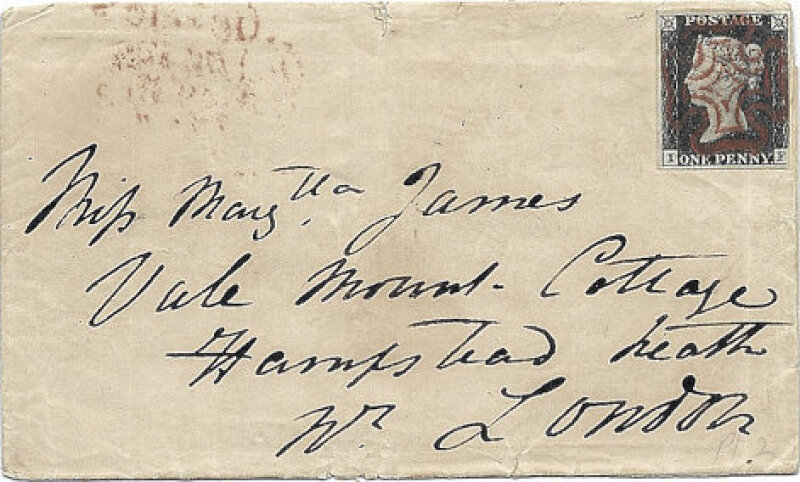 POSTAGE
ONE PENNY
Miss Marg.tta James
Vale Mount Cottage
Hampstead heath
Nr London